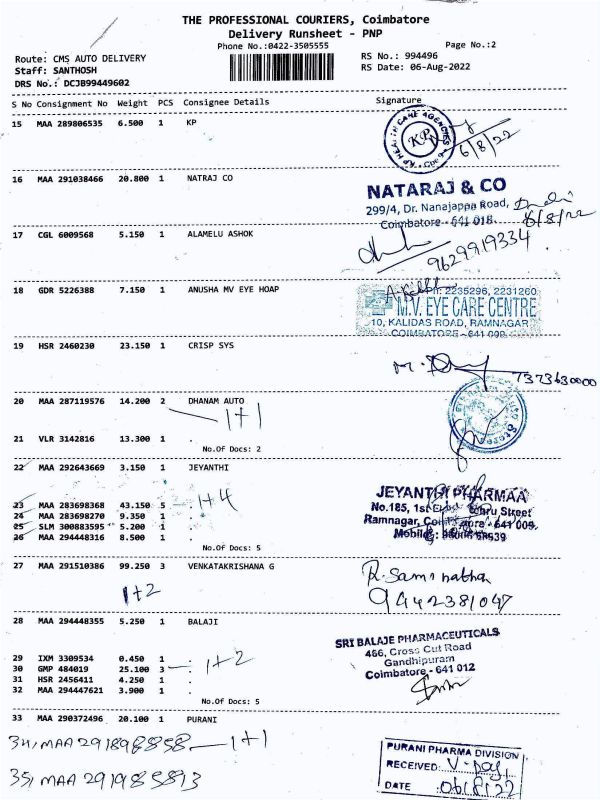 THE PROFESSIONAL COURIERS, Coimbatore
Delivery Runsheet - PNP
Phone No.:0422-3505555
Page No.:2
Route: CMS AUTO DELIVERY
RS No.: 994496
Staff: SANTHOSH
RS Date: 06-Aug-2022
DRS No.: DCJB99449602
S No Consignment No Weight PCS Consignee Details Signature
15 MAA 289806535 6.500 1 KP
KP HEALTH CARE AGENCIES
KP
6/8/22
16 MAA 291038466 20.800 1 NATRAJ CO
NATARAJ & CO
299/4, Dr. Nanajappa Road,
Coimbatore - 641 018.
6/8/22
17 CGL 6009568 5.150 1 ALAMELU ASHOK
9629919334
18 GDR 5226388 7.150 1 ANUSHA MV EYE HOAP
Ph: 2235296, 2231260
M.V. EYE CARE CENTRE
10, KALIDAS ROAD, RAMNAGAR
COIMBATORE - 641 009
19 HSR 2460230 23.150 1 CRISP SYS
7373630000
20 MAA 287119576 14.200 2 DHANAM AUTO
1+1
21 VLR 3142816 13.300 1 .
No.Of Docs: 2
22 MAA 292643669 3.150 1 JEYANTHI
JEYANTHI PHARMAA
No.185, 1st Street
Ramnagar, Coimbatore - 641 009.
23 MAA 283698368 43.150 5 .
1+4
24 MAA 283698270 9.350 1 .
25 SLM 300883595 5.200 1 .
26 MAA 294448316 8.500 1 .
No.Of Docs: 5
27 MAA 291510386 99.250 3 VENKATAKRISHANA G
1+2
R. Saminathan
9442381047
28 MAA 294448355 5.250 1 BALAJI
SRI BALAJE PHARMACEUTICALS
466, Cross Cut Road
Gandhipuram
Coimbatore - 641 012
29 IXM 3309534 0.450 1 .
30 GMP 484019 25.100 3 .
1+2
31 HSR 2456411 4.250 1 .
32 MAA 294447621 3.900 1 .
No.Of Docs: 5
33 MAA 290372496 20.100 1 PURANI
34, MAA 291898858 — 1+1
35, MAA 291985893
PURANI PHARMA DIVISION
RECEIVED:
DATE :06/8/22